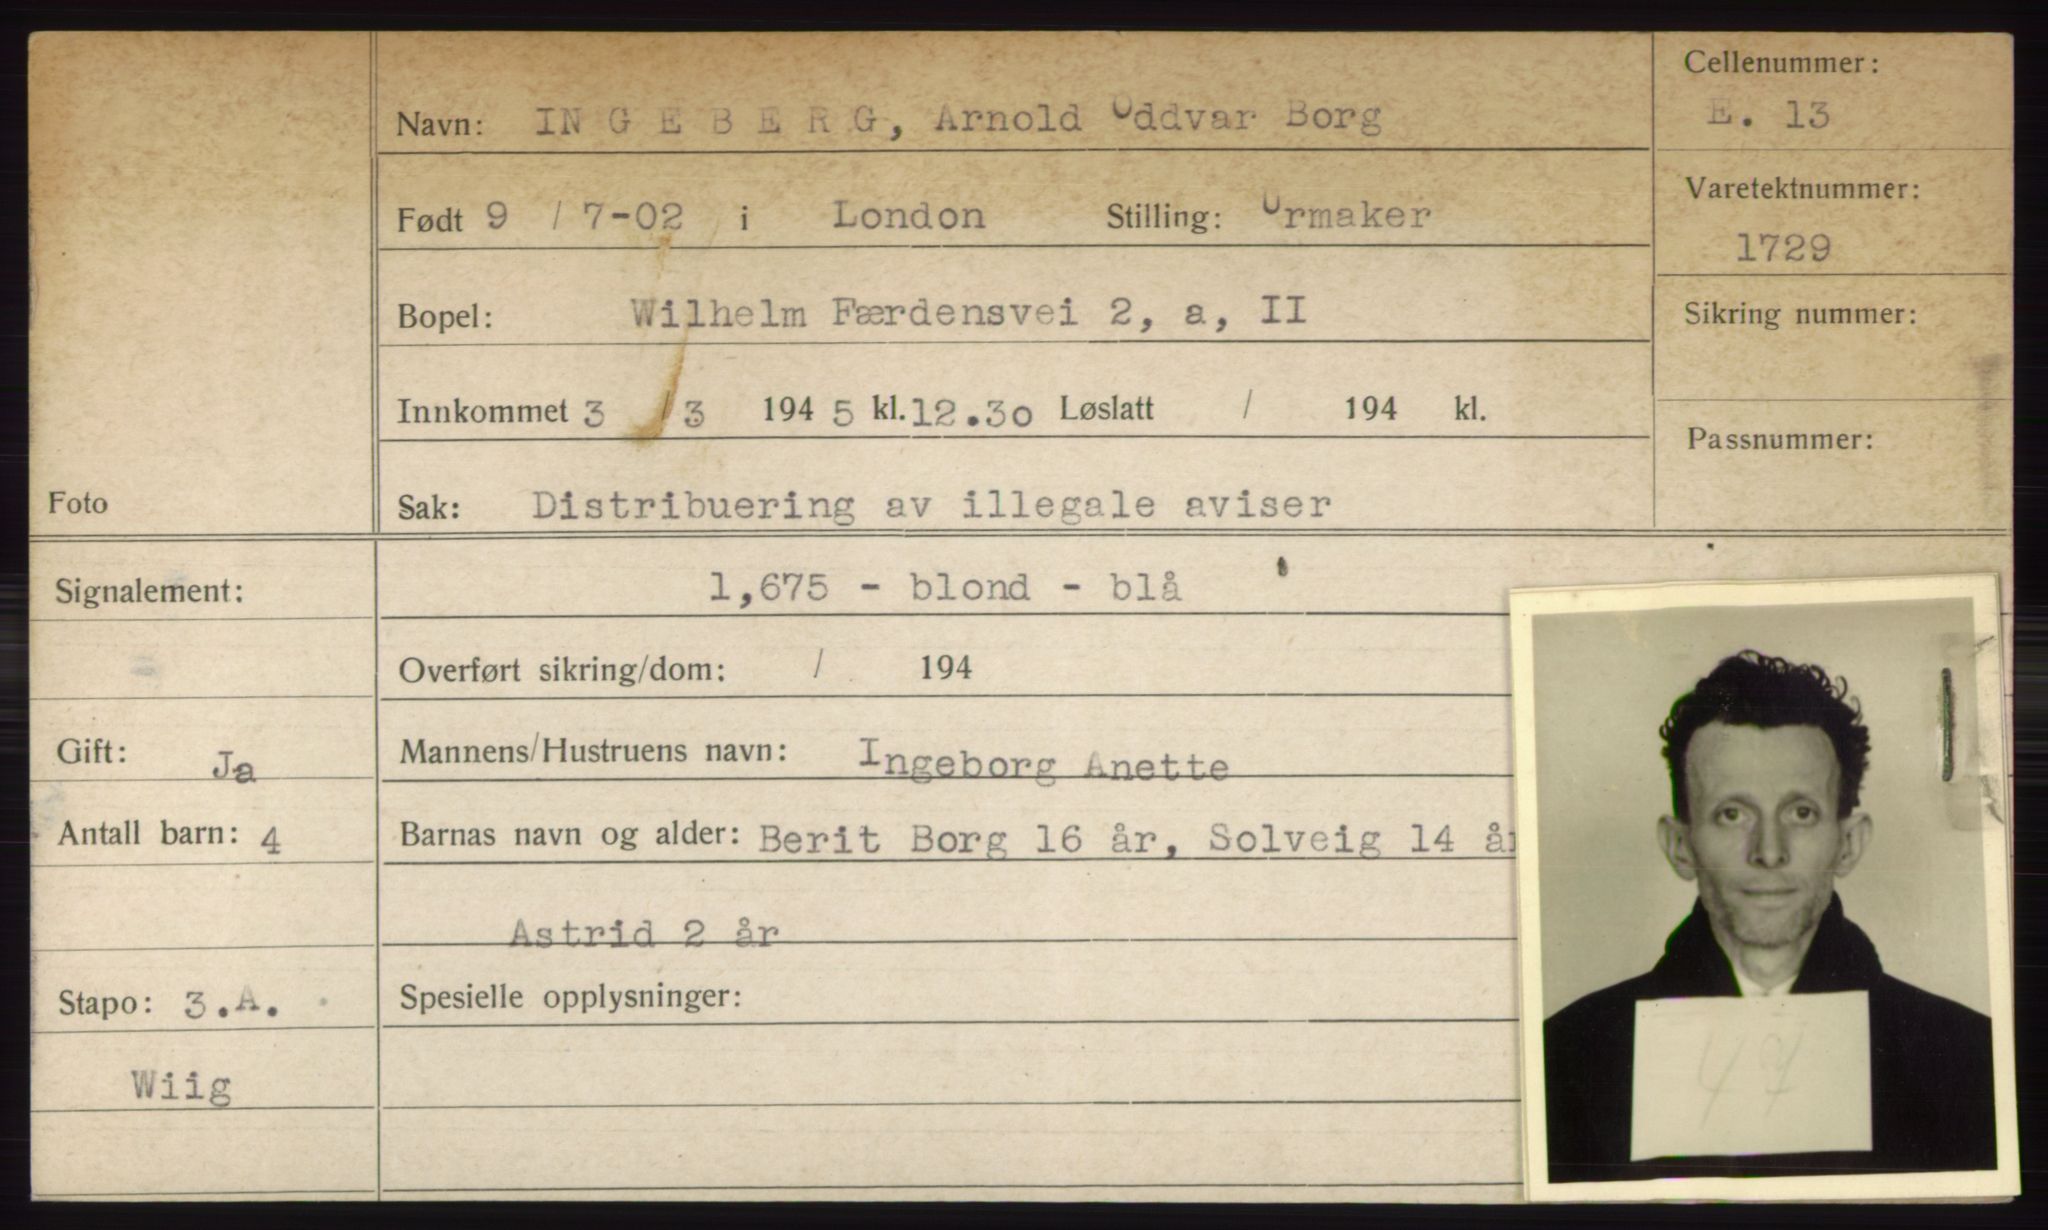 Navn: INGEBERG, Arnold Oddvar Borg
Cellenummer:
E. 13
Født 9 / 7-02 i London Stilling: Urmaker
Varetektnummer:
1729
Bopel: Wilhelm Færdensvei 2, a, II
Sikring nummer:
Innkommet 3 / 3 1945 kl. 12.30 Løslatt / 194 kl.
Passnummer:
Foto
Sak: Distribuering av illegale aviser
Signalement: 1,675 - blond - blå
Overført sikring/dom: / 194
Gift: Ja Mannens/Hustruens navn: Ingeborg Anette
Antall barn: 4 Barnas navn og alder: Berit Borg 16 år, Solveig 14 år
Astrid 2 år
Stapo: 3.A. Spesielle opplysninger:
Wiig
47